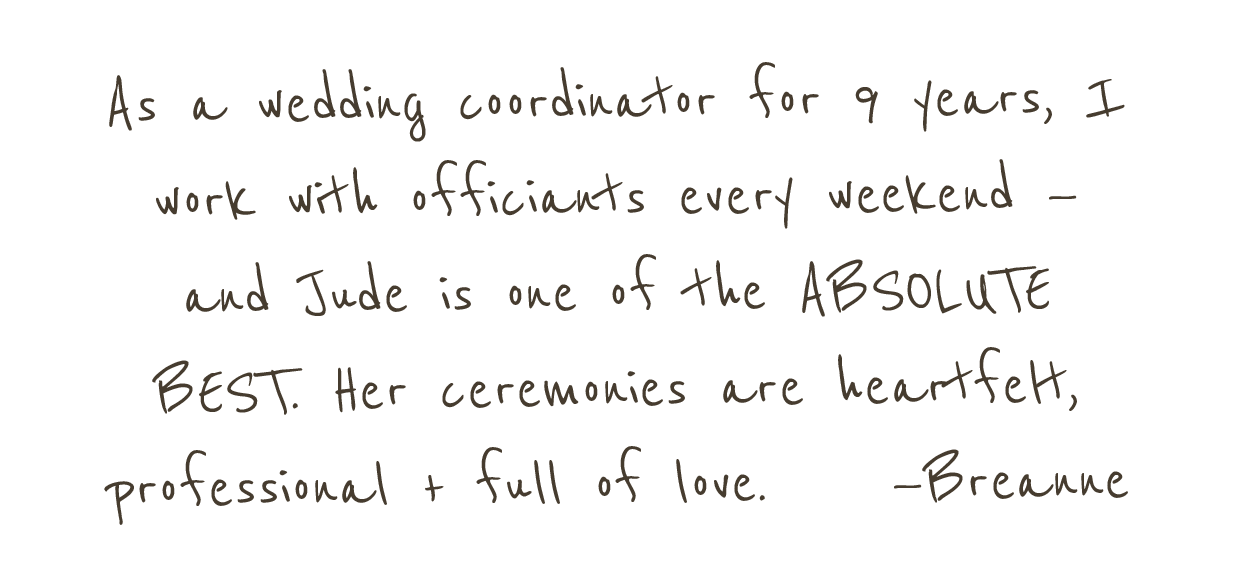 As a wedding coordinator for 9 years, I
work with officiants every weekend –
and Jude is one of the ABSOLUTE
BEST. Her ceremonies are heartfelt,
professional + full of love. –Breanne